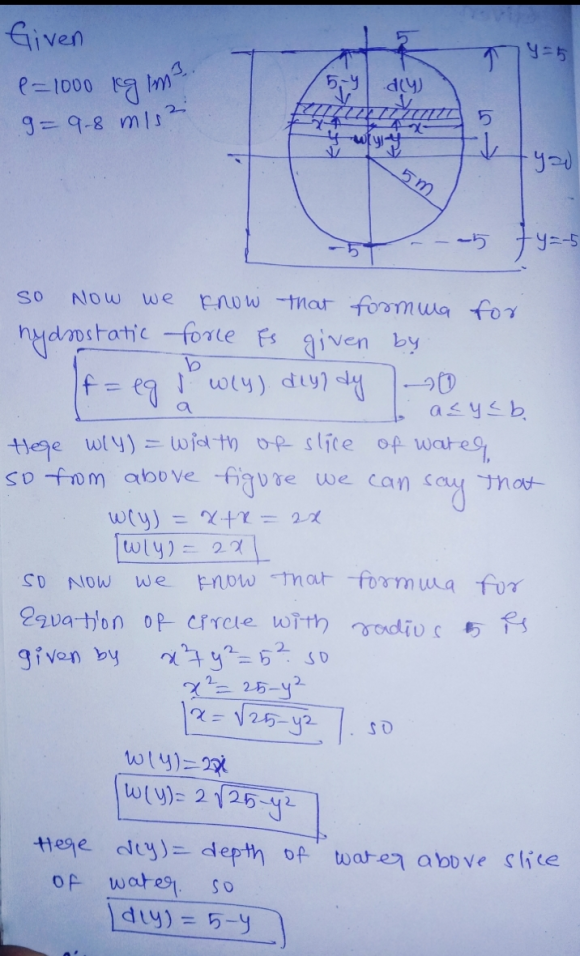 Given
ρ=1000 kg/m³
g= 9.8 m/s²
5
y=5
5-y
d(y)
x
x
5
y
w(y)
y
y=0
5m
-5
-5
y=-5
SO NOW we know that formula for
hydrostatic force is given by
f = ρg ∫ₐᵇ w(y) d(y) dy → ①
a≤y≤b.
Here w(y) = width of slice of water,
so from above figure we can say that
w(y) = x+x = 2x
w(y) = 2x
SO NOW we know that formula for
Equation of circle with radius 5 is
given by x²+y²=5². so
x²= 25-y²
x = √25-y² . so
w(y)=2x
w(y)= 2√25-y²
Here d(y)= depth of water above slice
of water. so
d(y) = 5-y